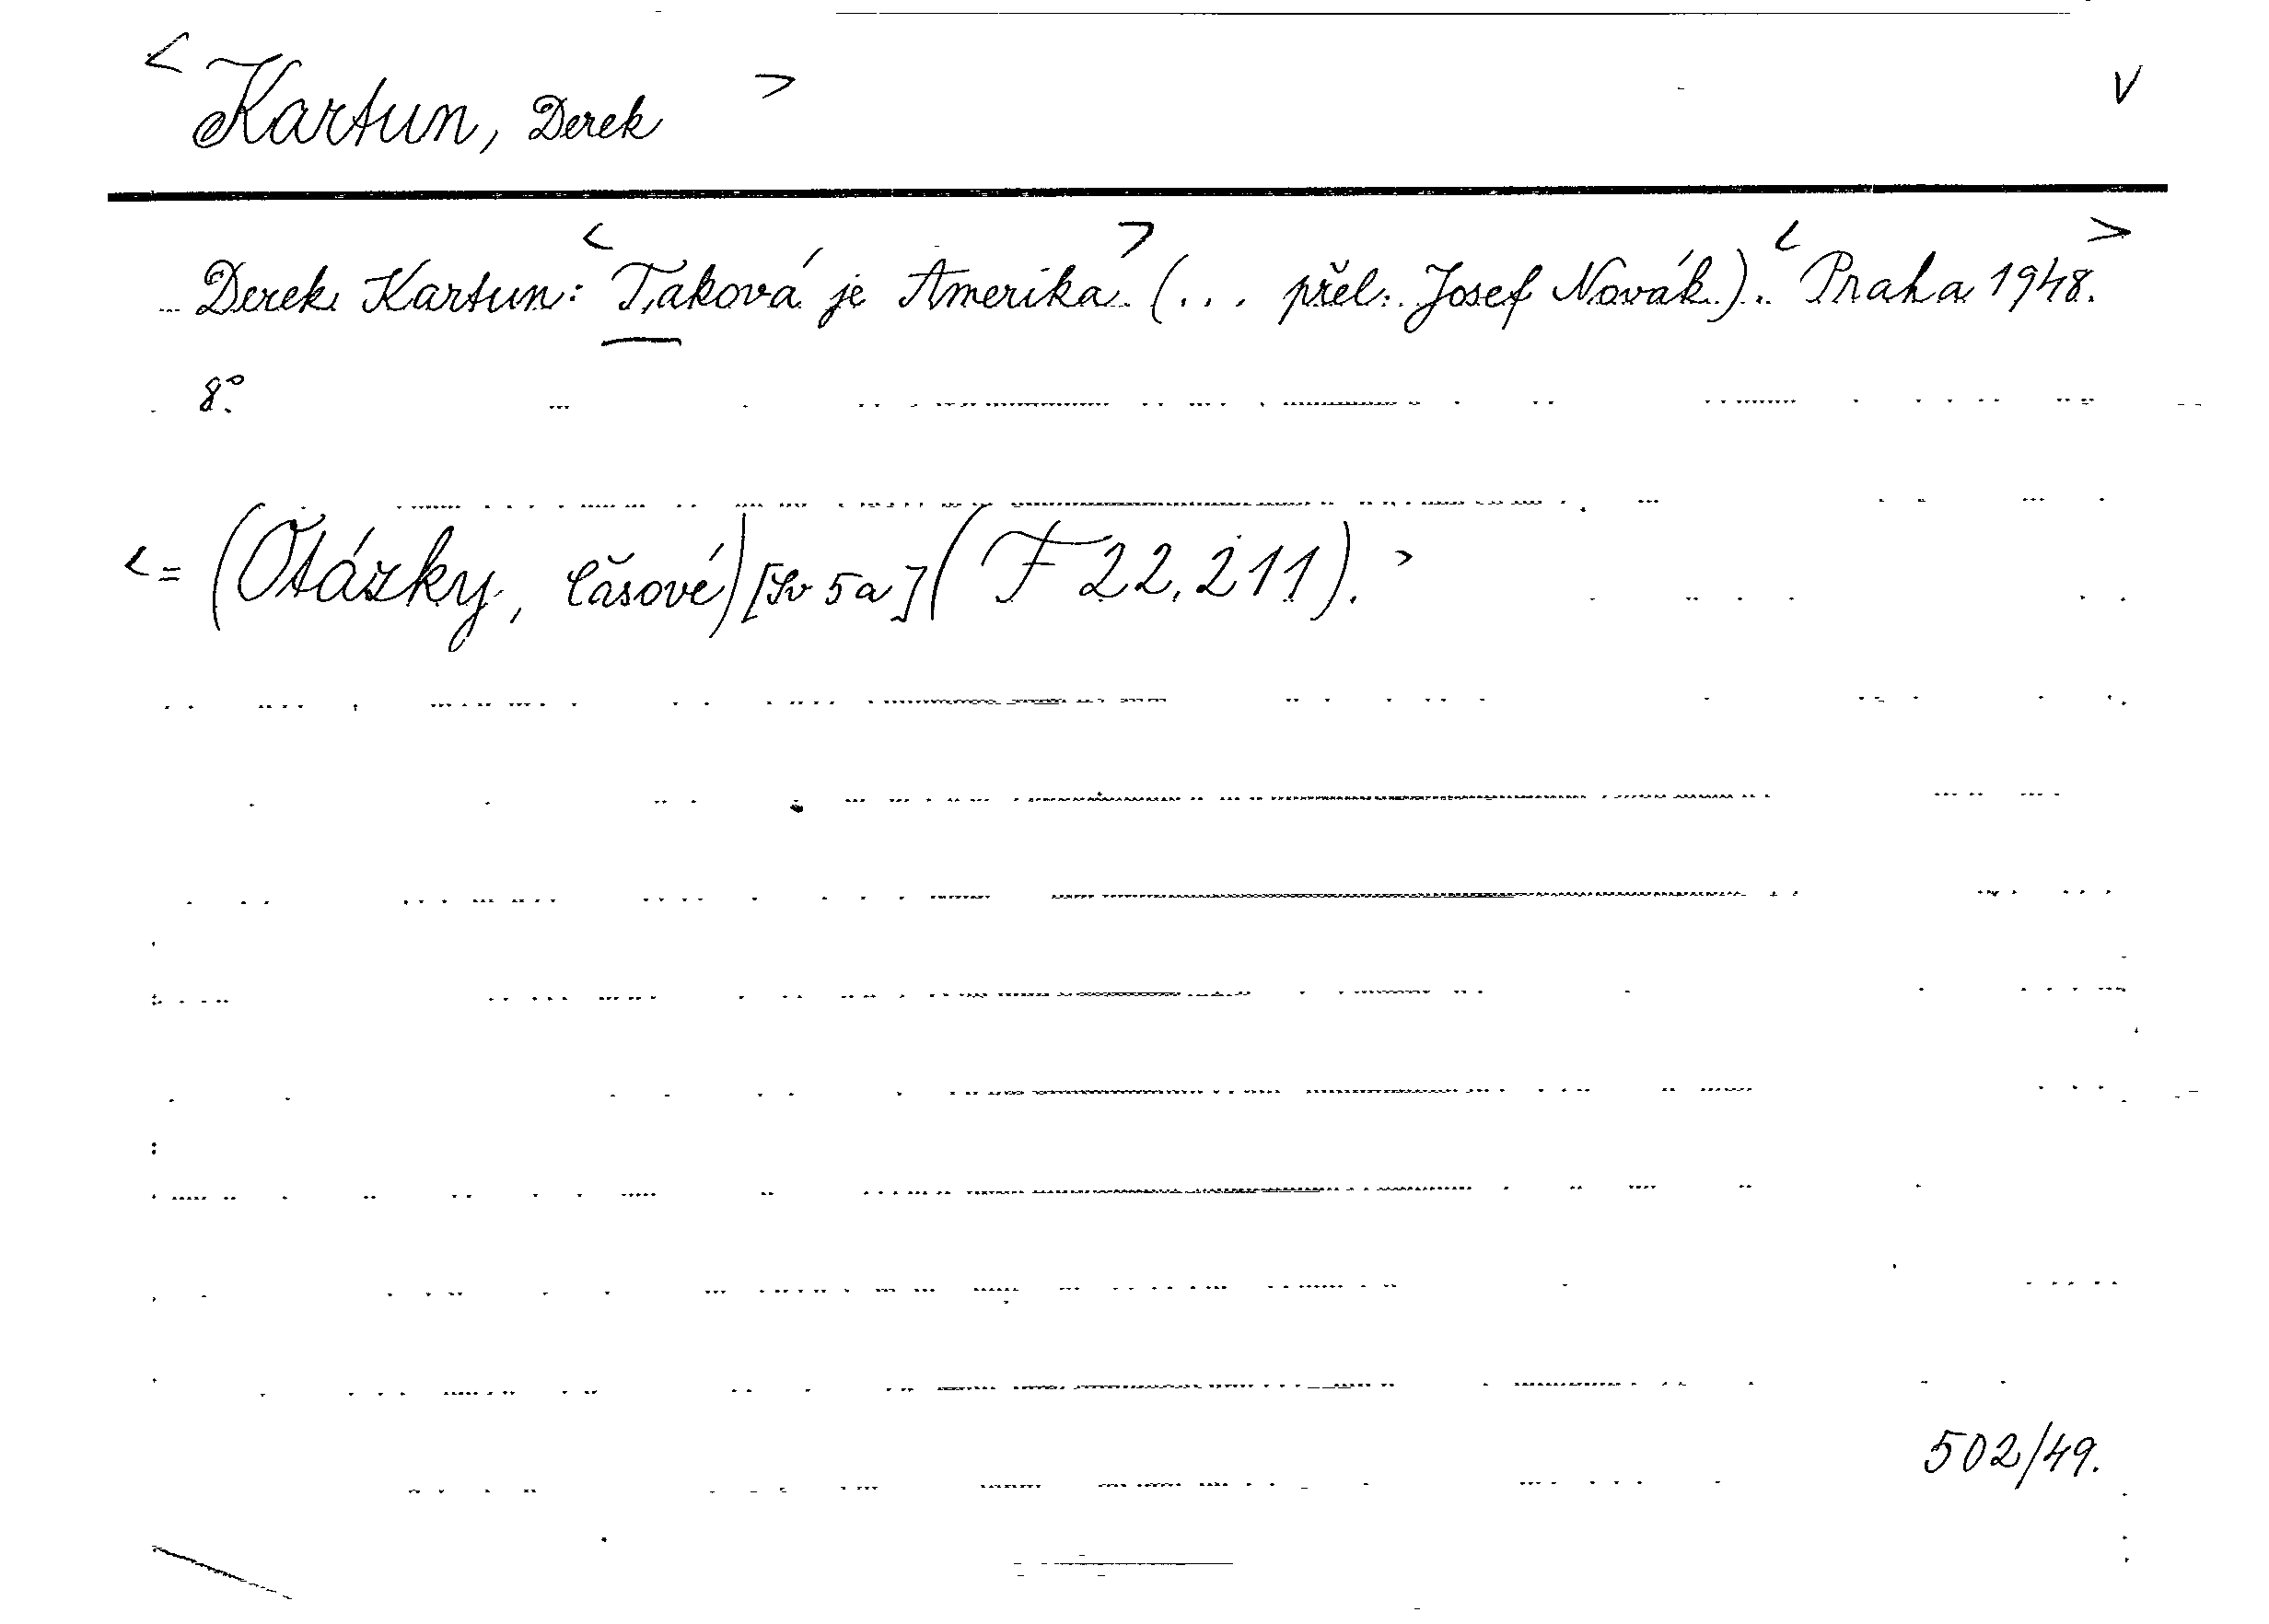 < Kartun, Derek > V
Derek Kartun: <Taková je Amerika> (... přel. Josef Novák). <Praha 1948.>
8°.
<= (Otázky, časové) [Sv 5a] (F 22.211).>
502/49.